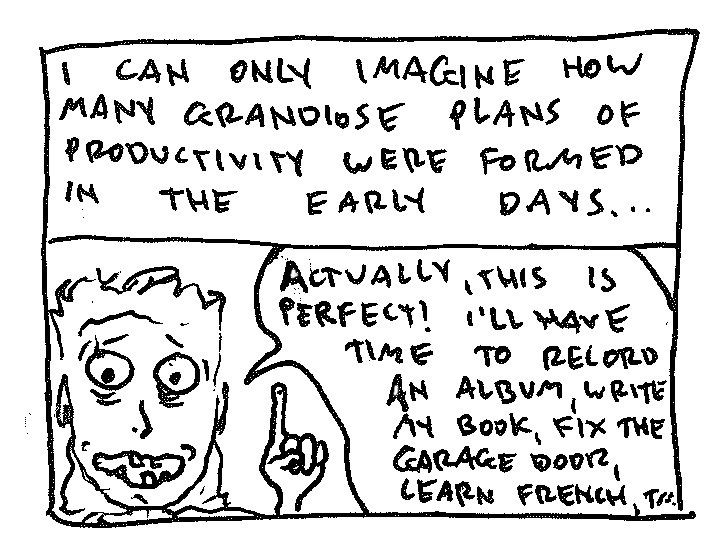 I CAN ONLY IMAGINE HOW
MANY GRANDIOSE PLANS OF
PRODUCTIVITY WERE FORMED
IN THE EARLY DAYS...
ACTUALLY, THIS IS
PERFECT! I'LL HAVE
TIME TO RECORD
AN ALBUM, WRITE
MY BOOK, FIX THE
GARAGE DOOR,
LEARN FRENCH,